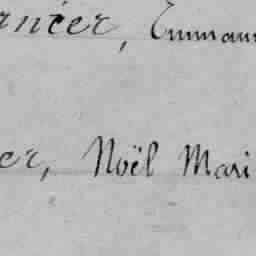 rnier, Emmanu
er, Noël Mari